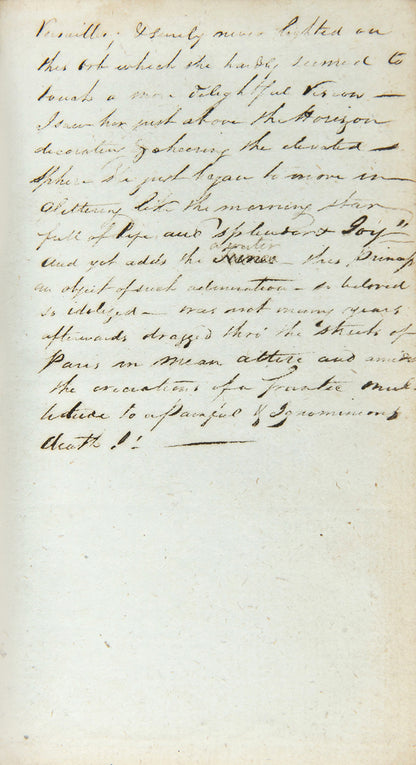 Versailles: & surely never lighted on
this orb which she hardly seemed to
touch a more delightful Vision —
I saw her just above the Horizon
decorating & cheering the elevated
Sphere she just began to move in —
Glittering like the morning star
full of life and splendor & Joy"
And yet adds the writer this Princess
an object of such admiration — so beloved
so idolized — was not many years
afterwards dragged thro' the streets of
Paris in mean attire and amidst
the execrations of a frantic mul
titude to a painful & Ignominious
death!! —